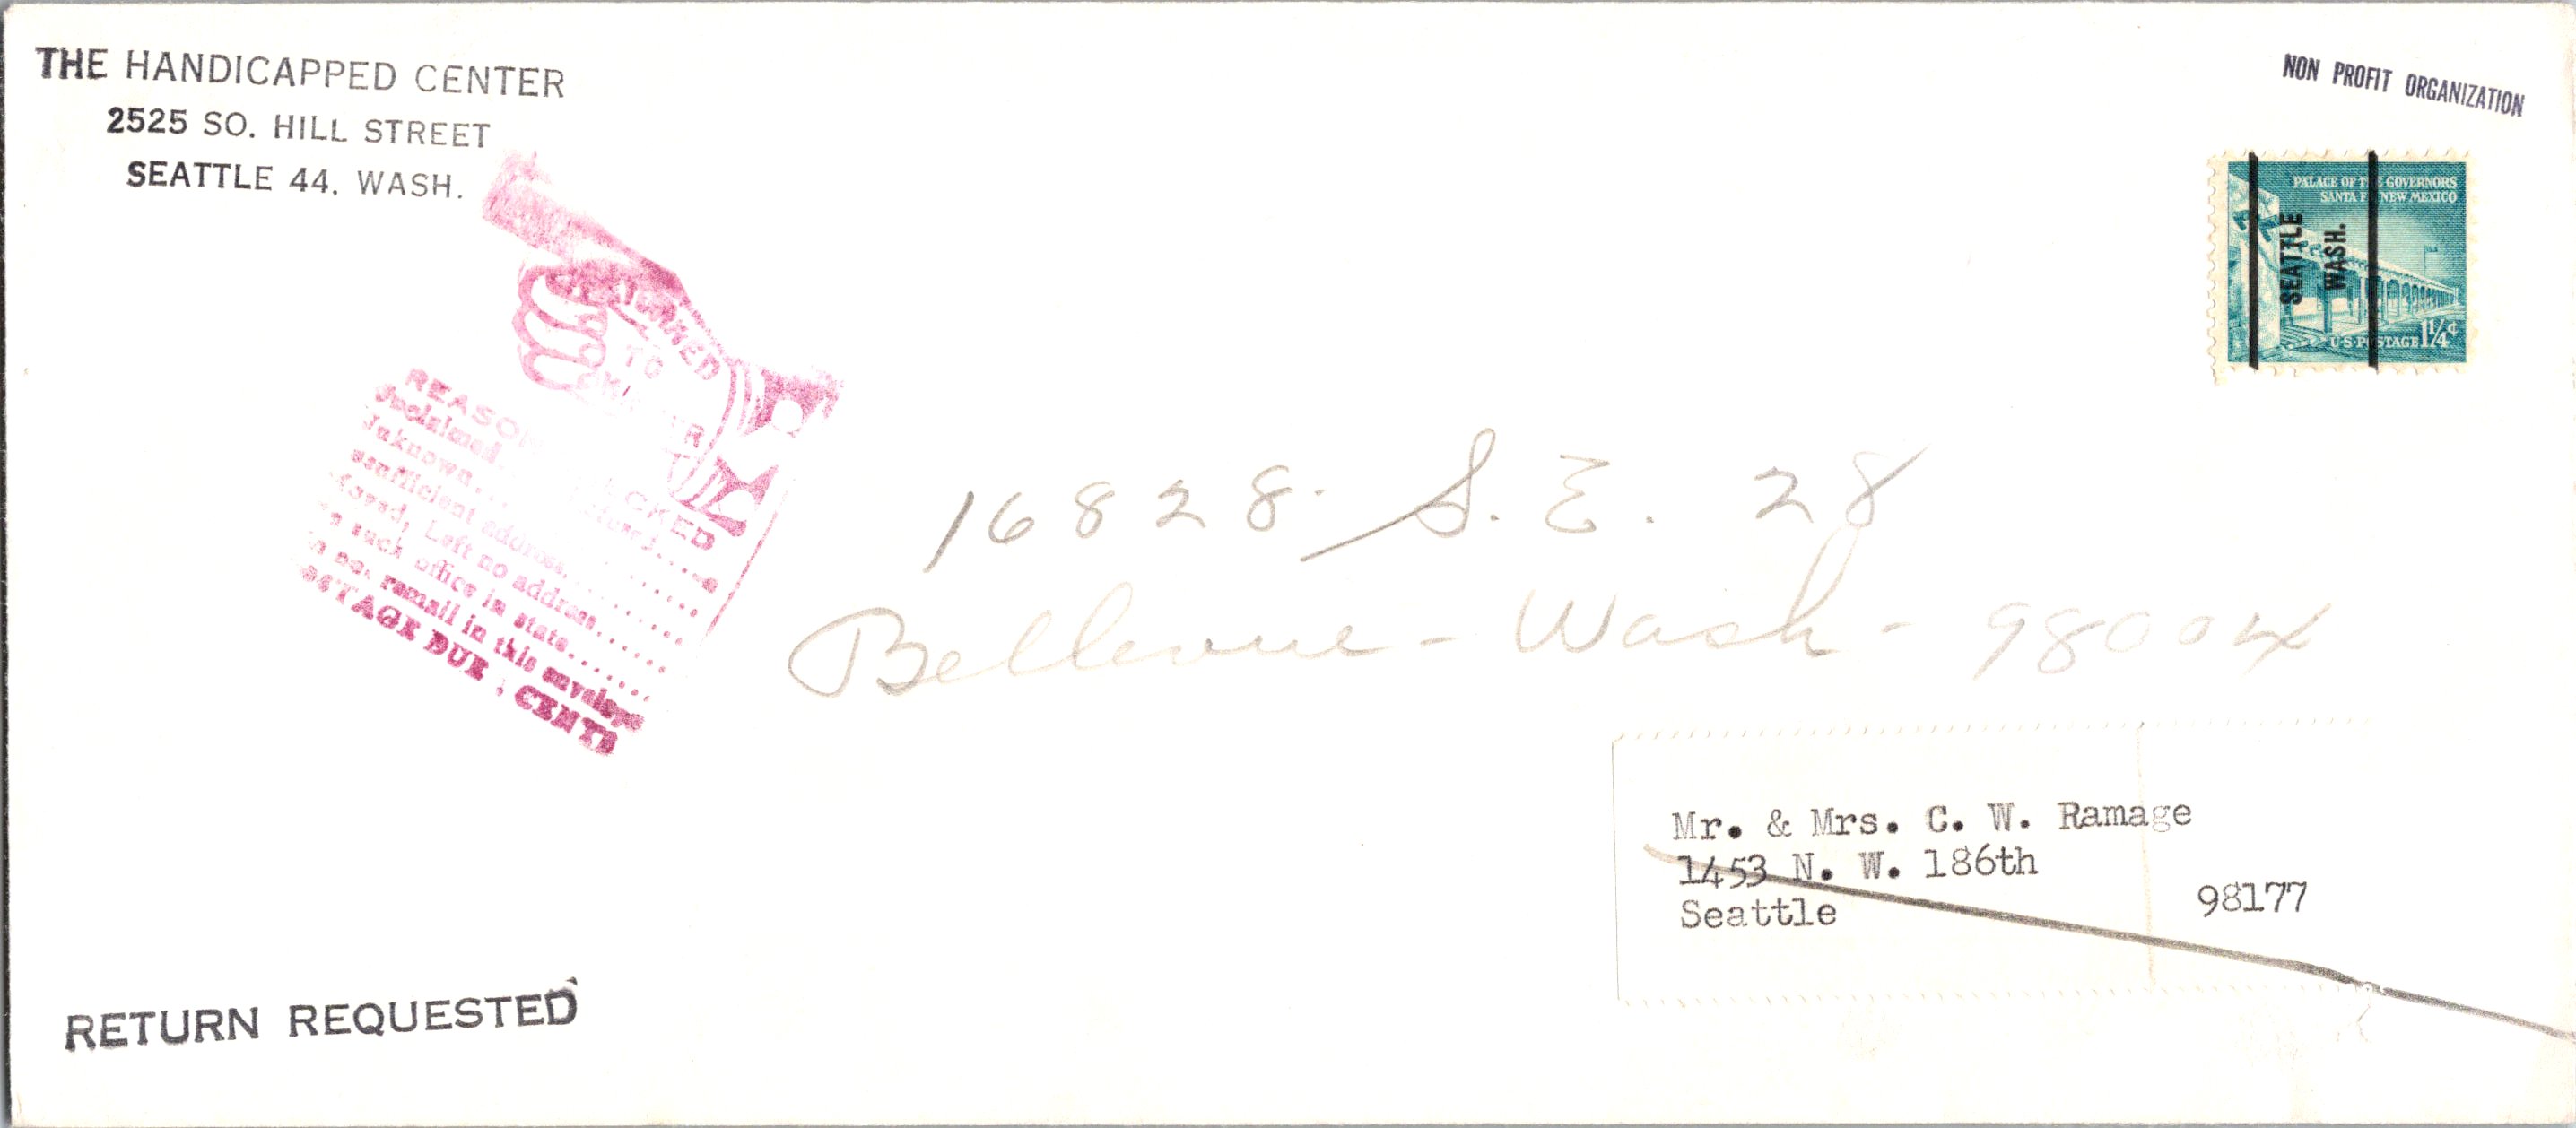 THE HANDICAPPED CENTER
2525 SO. HILL STREET
SEATTLE 44, WASH.
NON PROFIT ORGANIZATION
PALACE OF THE GOVERNORS
SANTA FE NEW MEXICO
SEATTLE
WASH.
U·S·POSTAGE 1 1/4¢
TO
REASON CKED
Unknown...
address.......
Left no address.......
such office in state.......
no. remail in this envelope
STAGE DUE CENTS
16828 S. E. 28
Bellevue - Wash - 98004
Mr. & Mrs. C. W. Ramage
1453 N. W. 186th
Seattle 98177
RETURN REQUESTED